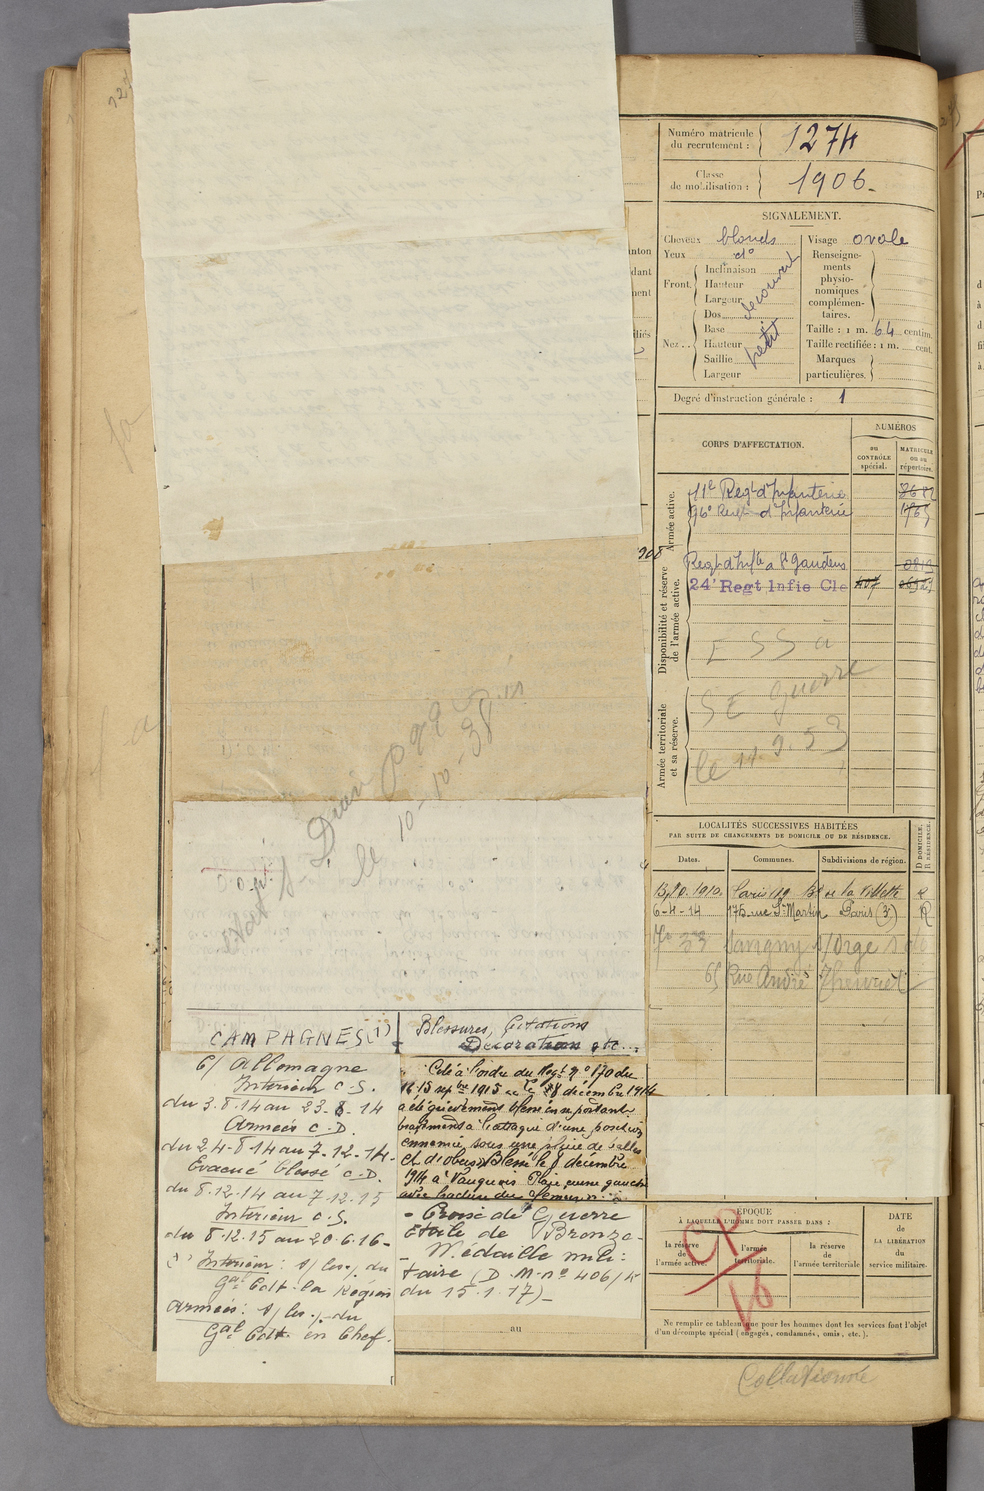 Numéro matricule
du recrutement :
1274
Classe
de mobilisation :
1906.
SIGNALEMENT.
Cheveux blonds
Yeux do
Front.
Inclinaison
Hauteur
Largeur
découvert
Nez
Dos
Base
Hauteur
Saillie
Largeur
petit
Visage ovale
Renseigne-
ments
physio-
nomiques
complémen-
taires.
Taille : 1 m. 64 centim.
Taille rectifiée : 1 m. cent.
Marques
particulières.
Degré d'instruction générale : 1
CORPS D'AFFECTATION.
NUMÉROS
au
CONTRÔLE
spécial.
MATRICULE
ou au
répertoire.
Armée active.
11e Regt d'Infanterie
96e Regt d'Infanterie
Disponibilité et réserve
de l'armée active.
Regt d'Infie à St Gaudens
24e Regt Infie Cle 407
ESS à
Armée territoriale
et sa réserve.
SE guerre
le 11.9.53
LOCALITÉS SUCCESSIVES HABITÉES
PAR SUITE DE CHANGEMENTS DE DOMICILE OU DE RÉSIDENCE.
Dates.
Communes.
Subdivisions de région.
D DOMICILE.
R RÉSIDENCE.
Paris 119 Bd de la Villette R
6-4-14 175 rue St Martin Paris (3e) R
Savigny s/Orge
65 Rue André
le 10-10-38
CAMPAGNES (1)
C/ Allemagne
Intérieur C.S.
du 3.8.14 au 23.8.14
Armées C.D.
du 24.8.14 au 7.12.14.
Evacué blessé C.D.
du 8.12.14 au 7.12.15
Intérieur C.S.
du 8.12.15 au 20.6.16-
Intérieur : s/ les / du
Gal Cdt la Région
Armées : s/ les / du
Gal Cdt en Chef.
Blessures, Citations
Décorations etc...
Cité à l'ordre du Regt no 170 du
15 sepbre 1915 le 8 décembre 1914
a été grièvement blessé en se portant
bravement à l'attaque d'une position
ennemie sous une pluie de balles
et d'obus. Blessé le 8 décembre
1914 à Vauquois Plaie cuisse gauche
avec fracture du fémur
- Croix de Guerre
Étoile de Bronze-
- Médaille mili-
taire (D. M. no 406/
du 15.1.17)-
au
ÉPOQUE
À LAQUELLE L'HOMME DOIT PASSER DANS :
la réserve
de
l'armée active.
l'armée
territoriale.
la réserve
de
l'armée territoriale
DATE
de
LA LIBÉRATION
du
service militaire.
CP
16
Ne remplir ce tableau que pour les hommes dont les services font l'objet
d'un décompte spécial (engagés, condamnés, omis, etc.).
Collationné